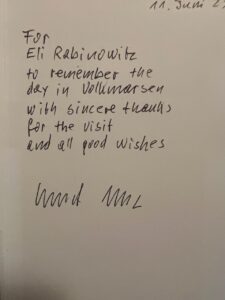 11. Juni 2
For
Eli Rabinowitz
to remember the
day in Volkmarsen
with sincere thanks
for the visit
and all good wishes